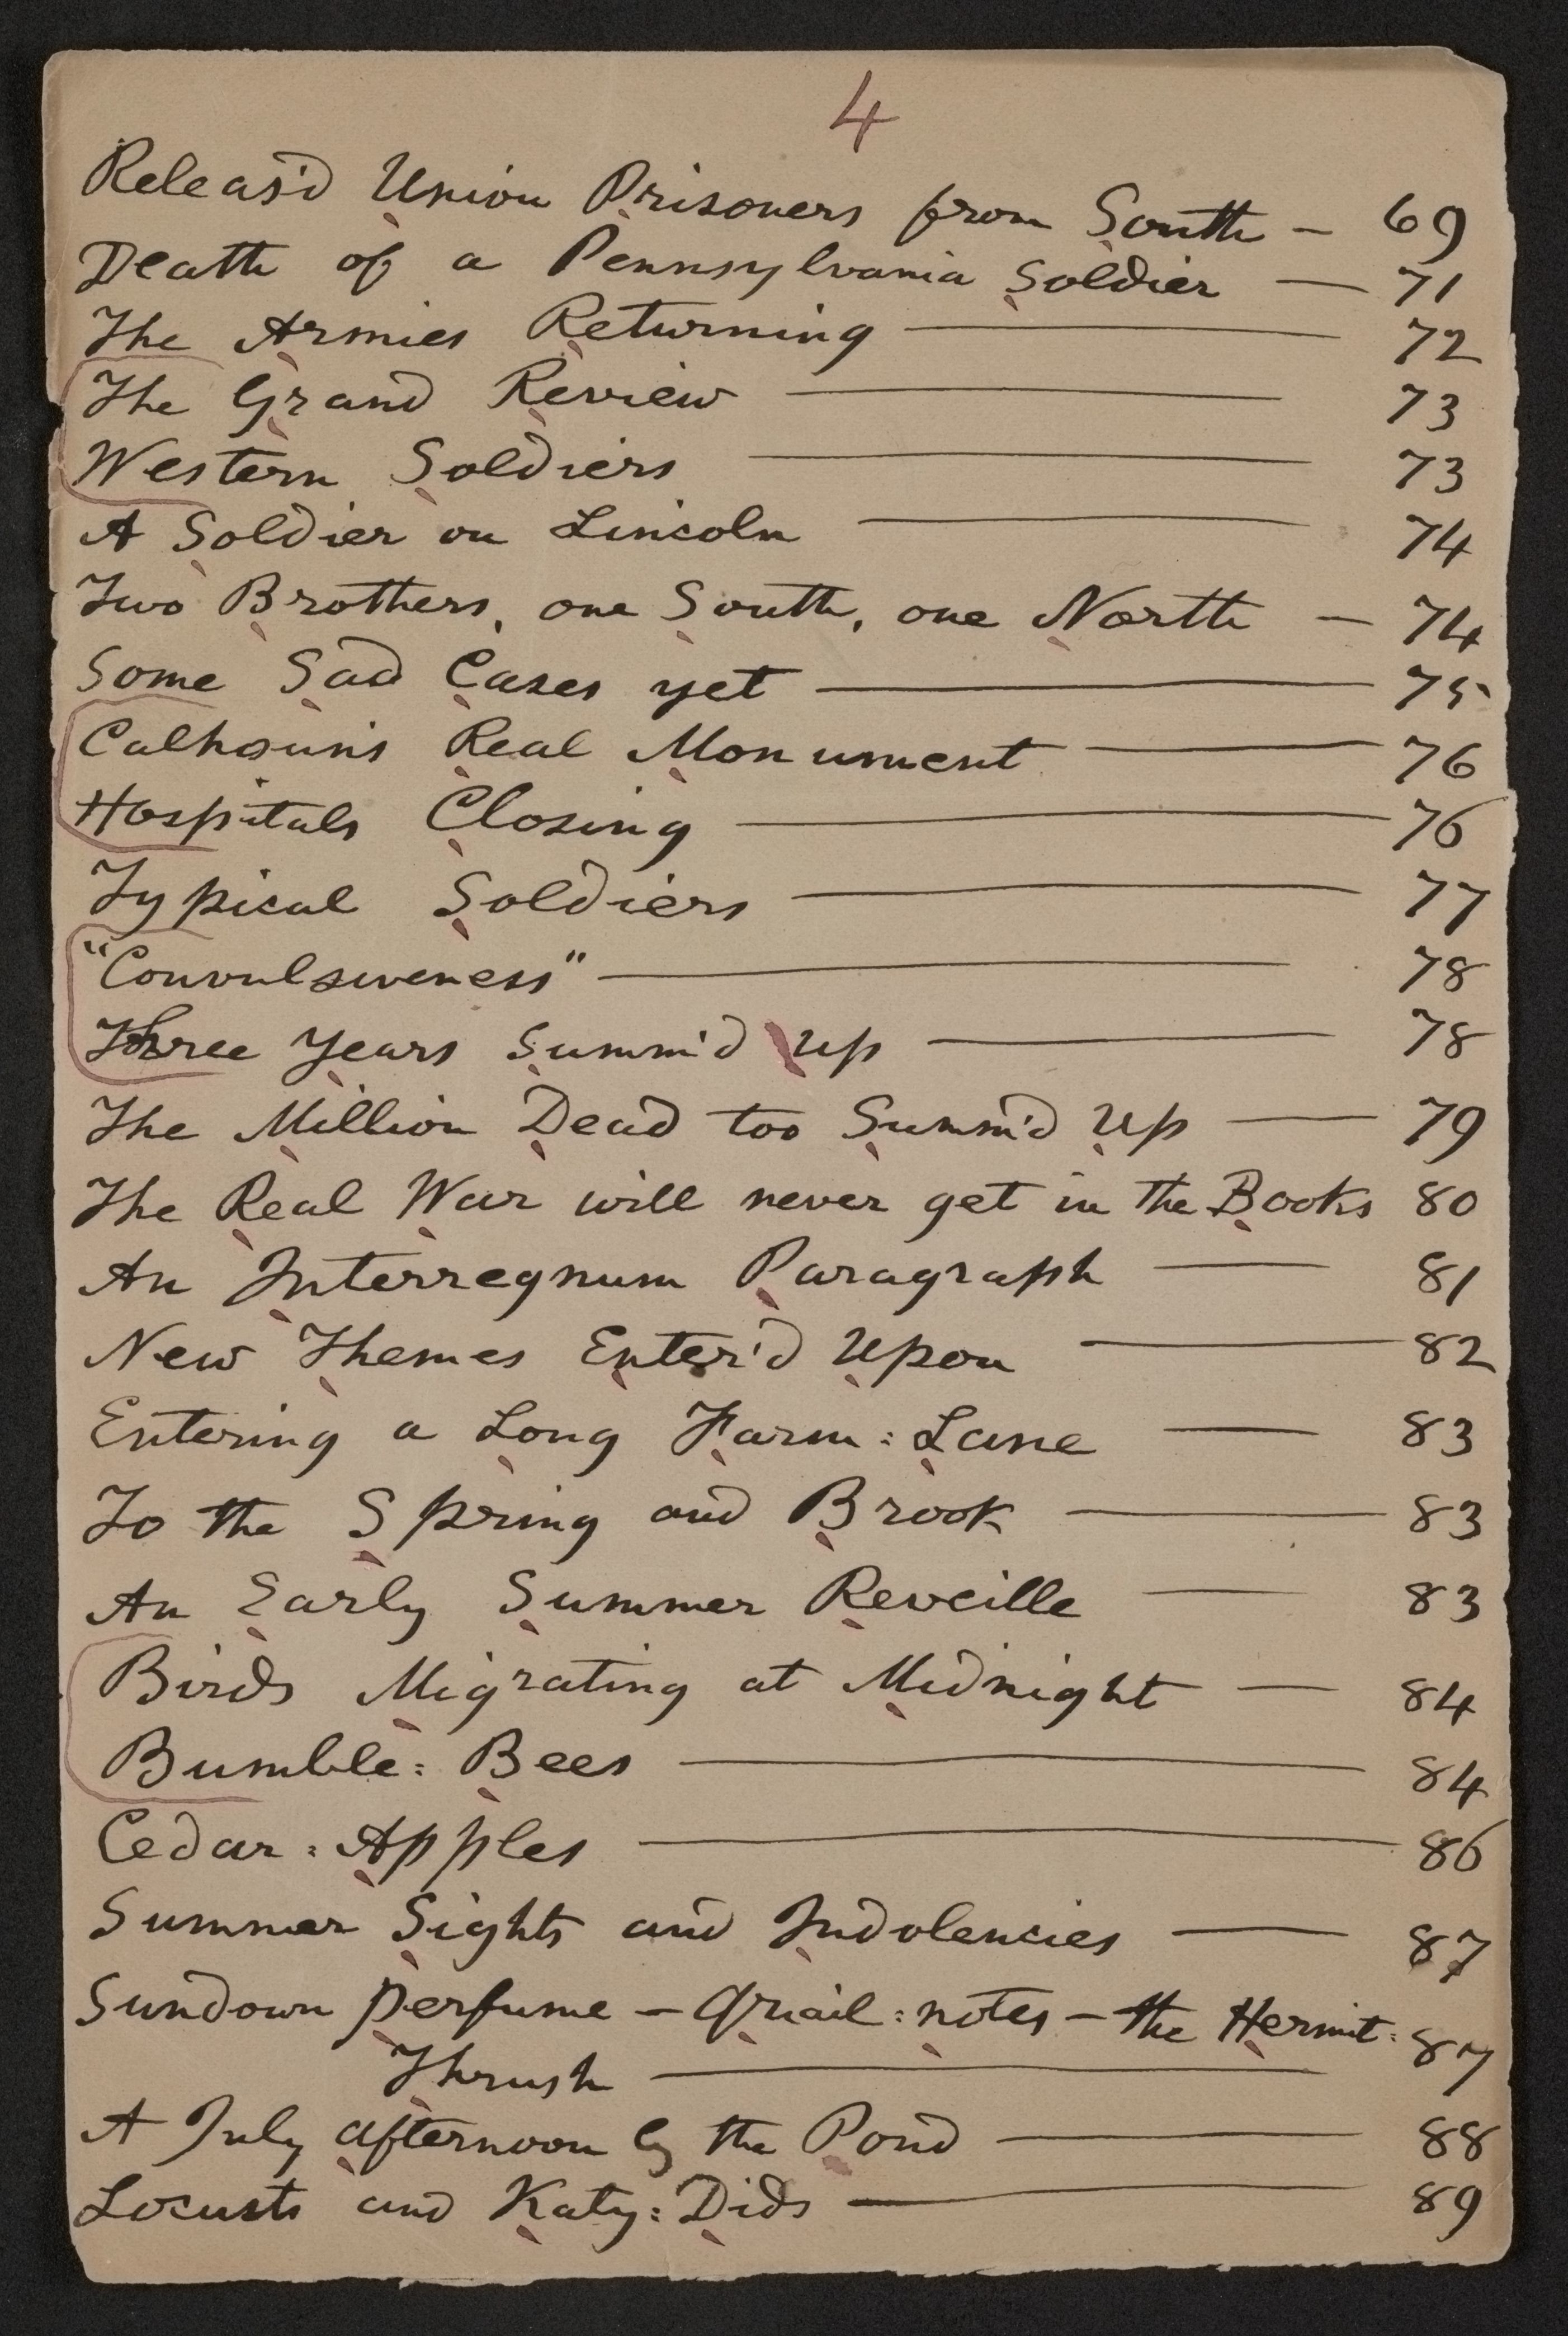 4
Releas'd Union Prisoners from South — 69
Death of a Pennsylvania Soldier — 71
The Armies Returning — 72
The Grand Review — 73
Western Soldiers — 73
A Soldier on Lincoln — 74
Two Brothers, one South, one North — 74
Some Sad Cases yet — 75
Calhoun's Real Monument — 76
Hospitals Closing — 76
Typical Soldiers — 77
"Convulsiveness" — 78
Three Years Summ'd Up — 78
The Million Dead too Summ'd Up — 79
The Real War will never get in the Books 80
An Interregnum Paragraph — 81
New Themes Enter'd Upon — 82
Entering a Long Farm=Lane — 83
To the Spring and Brook — 83
An Early Summer Reveille — 83
Birds Migrating at Midnight — 84
Bumble=Bees — 84
Cedar=Apples — 86
Summer Sights and Indolencies — 87
Sundown Perfume — Quail=notes — the Hermit= 87
Thrush —
A July afternoon by the Pond — 88
Locusts and Katy=Dids — 89